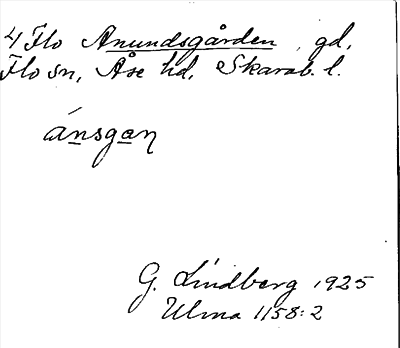 4 Flo Anundsgården, gd,
Flo sn, Åse hd, Skarab. l.
ánsgan
G. Lindberg 1925
Ulma 1158:2